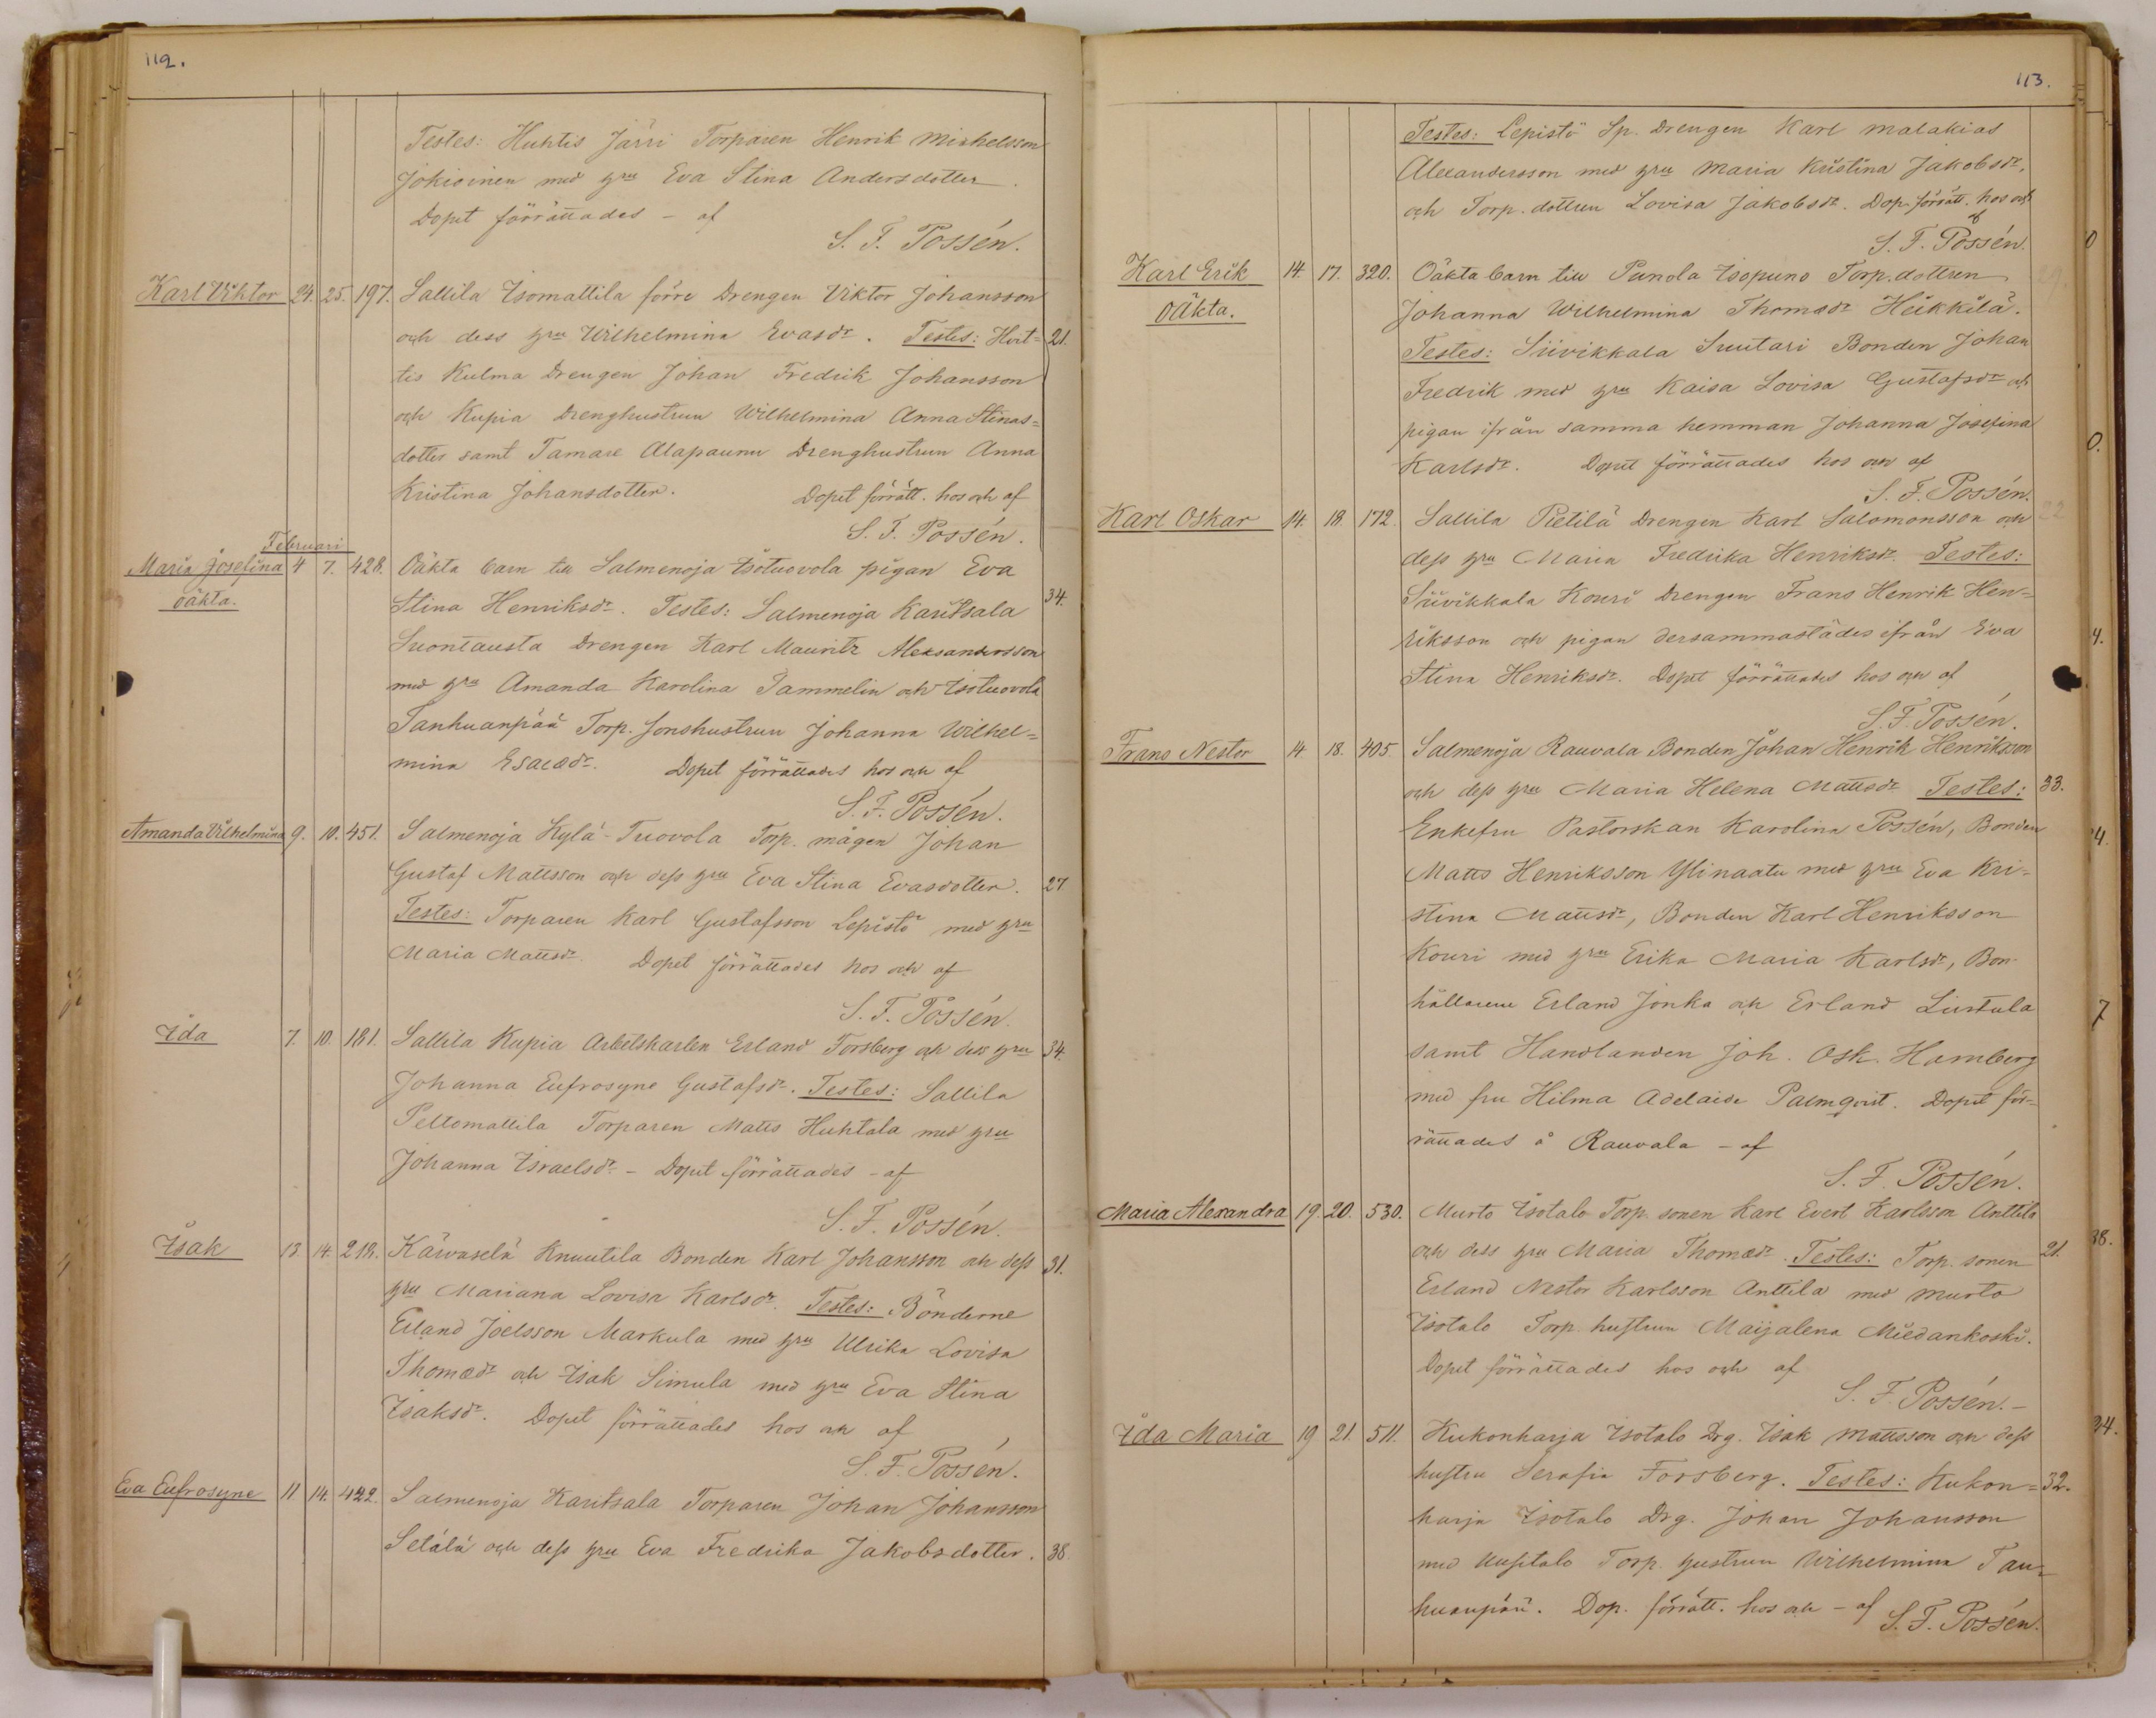 112.
Testes: Huhtis Järri Torparen Henrik Mickelsson
Jokioinen med hru Eva Stina Andersdotter.
Dopet förrättades - af
S. F. Possén.
Karl Viktor 24. 25. 197. Sallila Isomattila förre Drengen Viktor Johansson
och dess hru Wilhelmina Evasdr. Testes: Hurt= 21.
tis Kulma Drengen Johan Fredrik Johansson
och Kupia Drenghustrun Wilhelmina Anna Stinas=
dotter samt Tamare Alapaunu Drenghustrun Anna
Kristina Johansdotter. Dopet förrätt. hos och af
S. F. Possén.
Februari
Maria Josefina 4 7. 428. Oäkta barn till Salmenoja Isotuovola pigan Eva
oäkta.
Stina Henriksdr. Testes: Salmenoja Karitsala 34.
Suontausta Drengen Karl Mauritz Aleksandersson
med hru Amanda Karolina Tammelin och Isotuovola
Tanhuanpää Torp. Sonshustrun Johanna Wilhel=
mina Esaiædr. Dopet förrättades hos och af
S. F. Possén.
Amanda Vilhelmina 9. 10. 451. Salmenoja Kylä-Tuovola Torp. mågen Johan
Gustaf Mattsson och dess hru Eva Stina Evasdotter. 27
Testes: Torparen Karl Gustafsson Lepistö med hru
Maria Mattsdr. Dopet förrättades hos och af
S. F. Possén.
Ida 7. 10. 181. Sallila Kupia Arbetskarlen Erland Forsberg och dess hru 34.
Johanna Eufrosyne Gustafsdr. Testes: Sallila
Peltomattila Torparen Matts Huhtala med hru
Johanna Israelsdr - Dopet förrättades - af
S. F. Possén.
Isak 13. 14. 218. Kärvaselä Knuutila Bonden Karl Johansson och dess 31.
hru Mariana Lovisa Karlsdr. Testes: Bönderne
Erland Joelsson Markula med hru Ulrika Lovisa
Thomædr och Isak Simula med hru Eva Stina
Isaksdr. Dopet förrättades hos och af
S. F. Possén.
Eva Eufrosyne 11 14. 422. Salmenoja Karitsala Torparen Johan Johansson
Setälä och dess hru Eva Fredrika Jakobsdotter. 38.
113.
Testes: Lepistö Sp. Drengen Karl Malakias
Alexandersson med hru Maria Kristina Jakobsdr,
och Torp. dottren Lovisa Jakobsdr. Dop. förrätt. hos och
af
S. F. Possén.
Karl Erik 14. 17. 320. Oäkta barn till Punola Isopuno Torp. dottren
Oäkta.
Johanna Wilhelmina Thomædr Heikkilä.
Testes: Siivikkala Suutari Bonden Johan
Fredrik med hru Kaisa Lovisa Gustafsdr och
pigan ifrån samma hemman Johanna Josefina
Karlsdr. Dopet förrättades hos och af
S. F. Possén.
Karl Oskar 14. 18. 172. Sallila Pietilä Drengen Karl Salomonsson och 22
dess hru Maria Fredrika Henriksdr. Testes:
Siivikkala Kouri Drengen Frans Henrik Hen=
riksson och pigan dersammastädes ifrån Eva
Stina Henriksdr. Dopet förrättades hos och af
S. F. Possén.
Frans Nestor 14. 18. 405. Salmenoja Rauvala Bonden Johan Henrik Henriksson
och dess hru Maria Helena Mattsdr Testes: 33.
Enkefru Pastorskan Karolina Possén, Bonden
Matts Henriksson Ylinaatu med hru Eva Kri=
stina Mattsdr, Bonden Karl Henriksson
Kouri med hru Erika Maria Karlsdr, Bon=
hållarene Erland Jonka och Erland Liustula
samt Handlanden Joh. Osk. Hamberg
med fru Hilma Adelaide Palmqvist. Dopet för=
rättades å Rauvala - af
S. F. Possén.
Maria Alexandra 19. 20. 530. Murto Isotalo Torp. sonen Karl Evert Karlsson Anttila
och dess hru Maria Thomædr. Testes: Torp. sonen 21.
Erland Nestor Karlsson Anttila med Murto
Isotalo Torp. hustrun Maijalena Miedankoski.
Dopet förrättades hos och af
S. F. Possén.-
Ida Maria 19 21. 511. Kukonharja Isotalo Drg. Isak Mattsson och dess
hustru Serafia Forsberg. Testes: Kukon= 32.
harja Isotalo Drg. Johan Johansson
med Uusitalo Torp. hustrun Wilhelmina Tan=
huanpää. Dop. förrätt. hos och - af S. F. Possén.